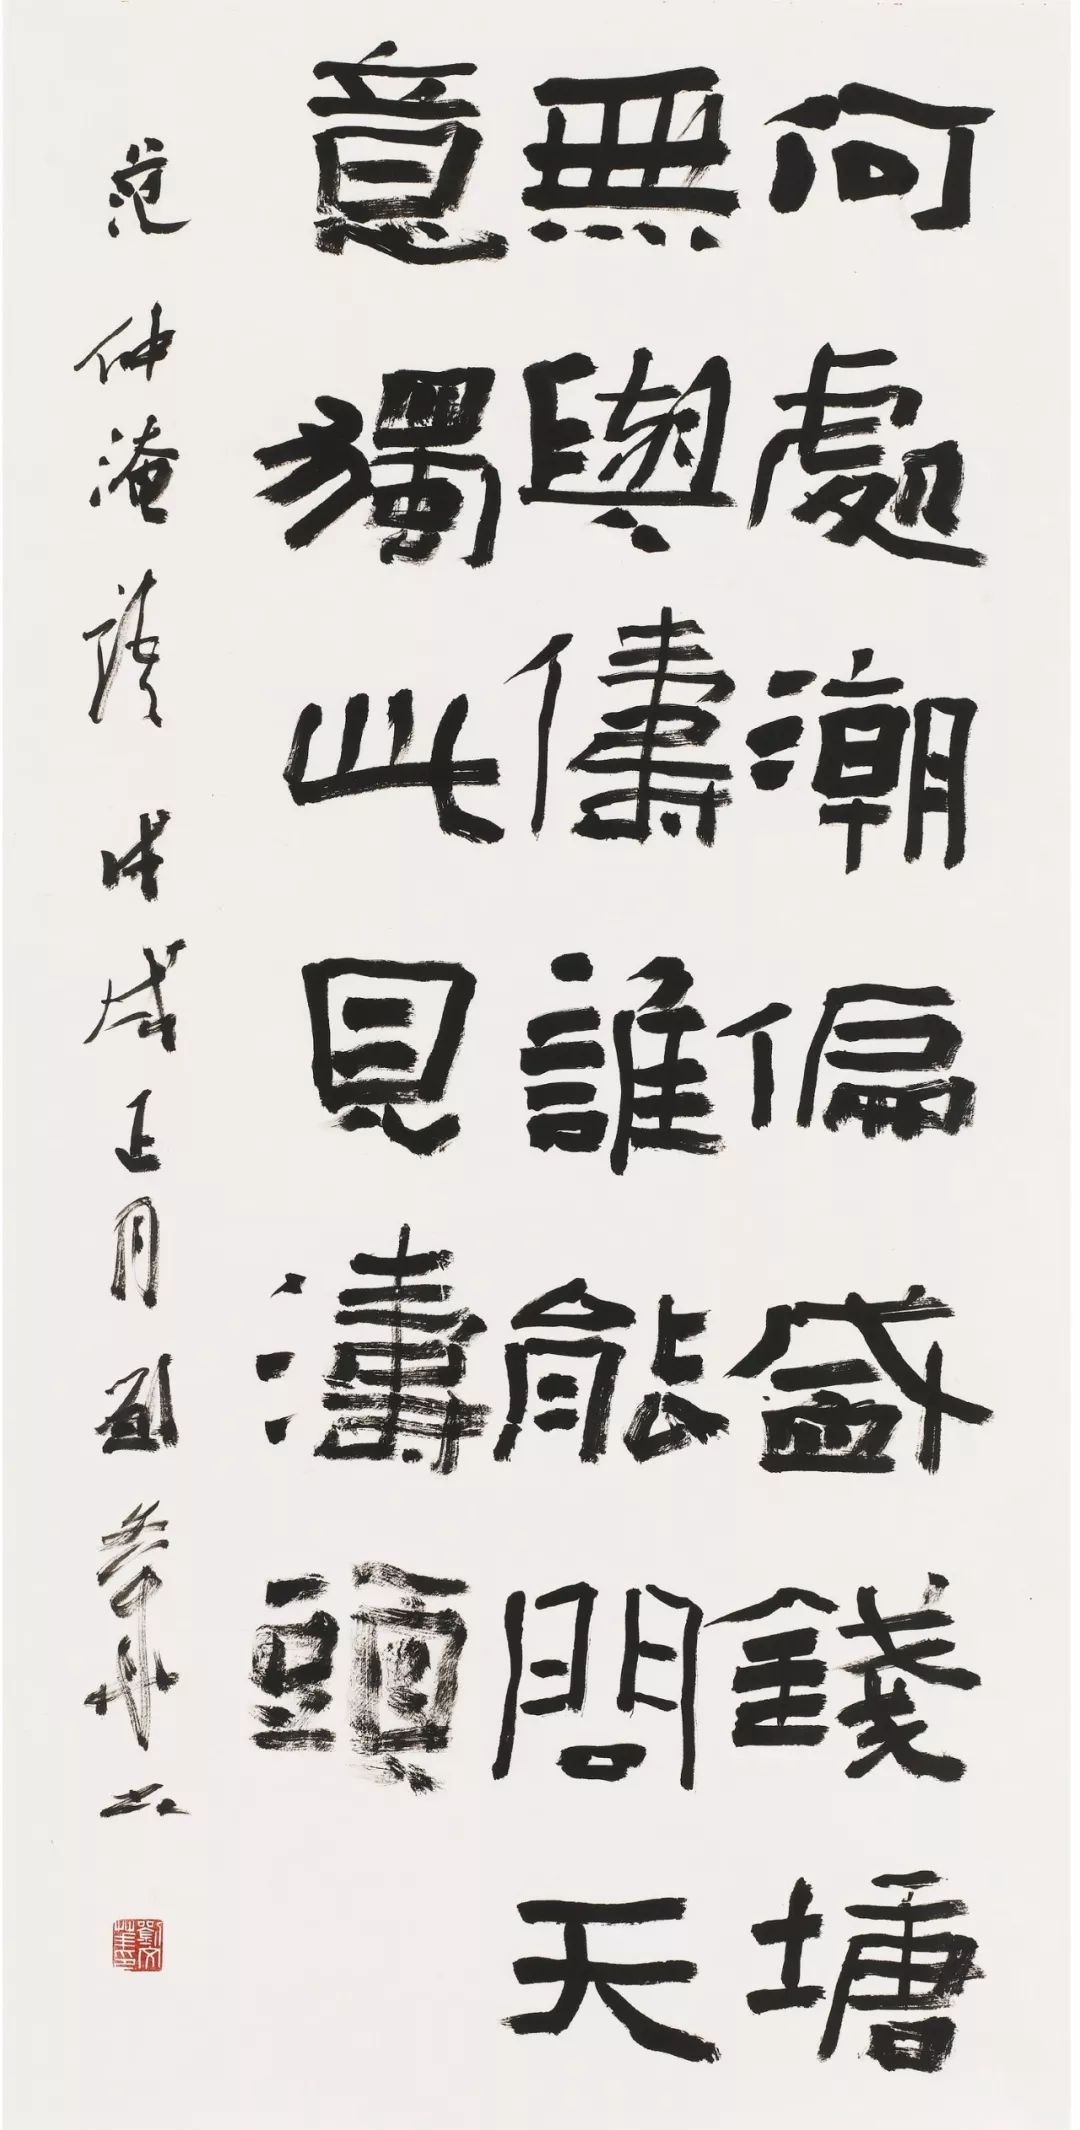 何處潮偏盛錢塘
無與儔誰能問天
意獨此見濤頭
范仲淹詩戊戌正月劉文華
劉文華印